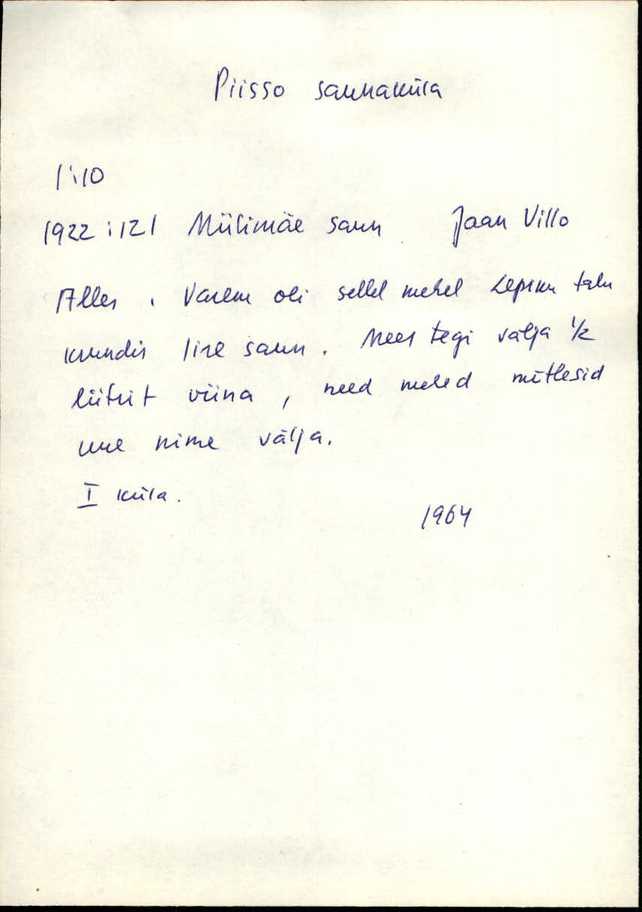 Piisso saunaküla
1:10
1922:121 Mülimäe saun Jaan Villo
Alles. Varem oli sellel mehel Lepiku talu
krundis Iire saun. Mees tegi välja 1/2
liitrit viina, need mehed mõtlesid
uue nime välja.
I küla.
1964